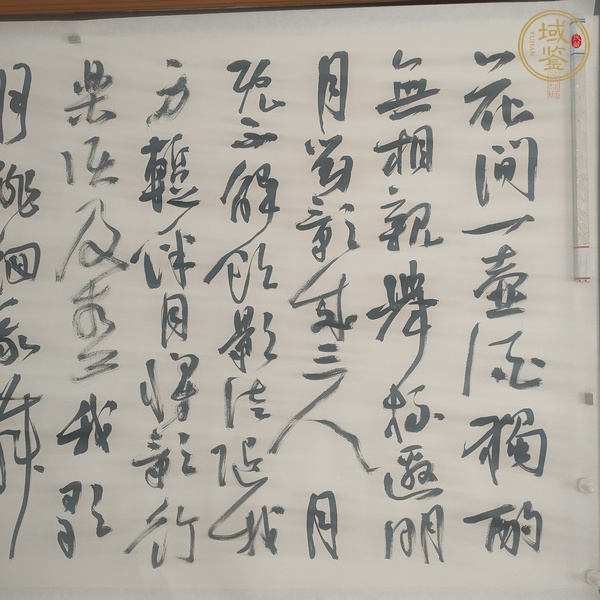 花間一壺酒獨酌
無相親舉杯邀明
月對影成三人 月
既不解飲影徒隨我
身暫伴月將影行
樂須及春我歌
月徘徊我舞
域鉴
YUJIAN